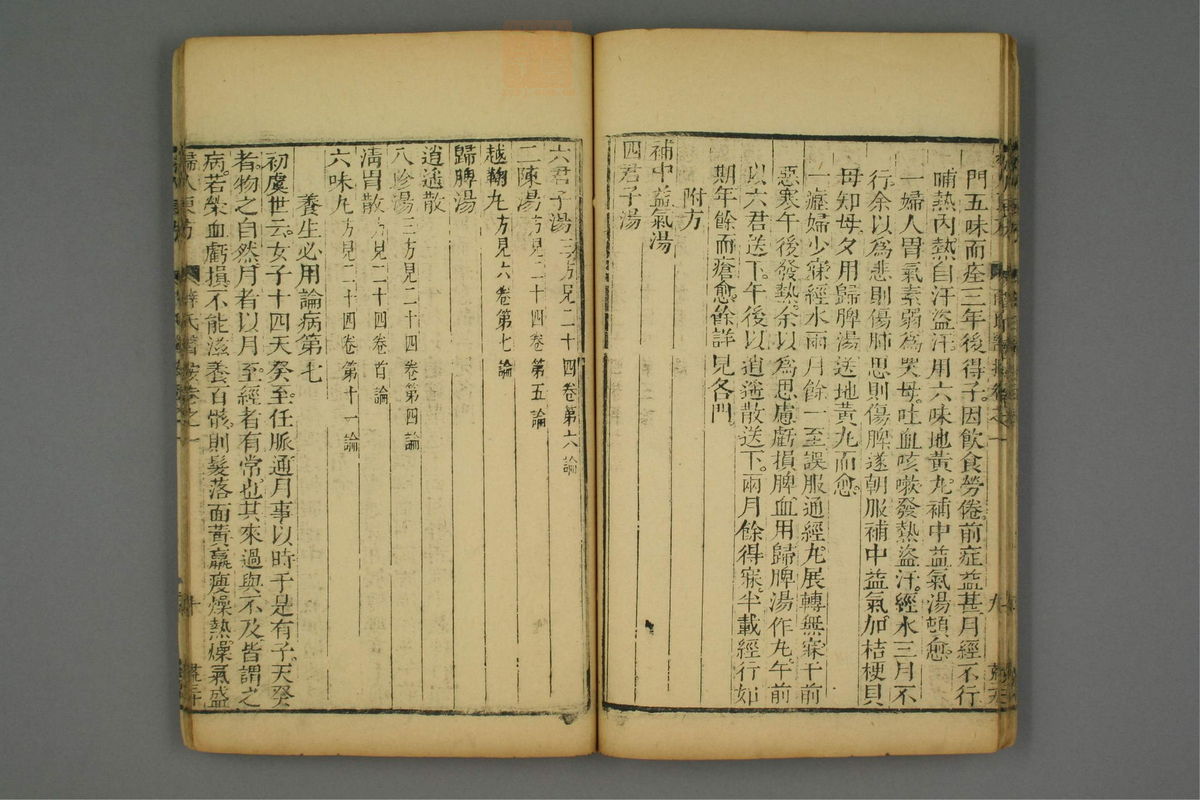 門五味而痊三年後得子因飲食勞倦前症益甚月經不行
晡熱內熱自汗盜汗用六味地黃丸補中益氣湯頓愈
一婦人胃氣素弱為哭母吐血咳嗽發熱盜汗經水三月不
行余以為悲則傷肺思則傷脾遂朝服補中益氣加桔梗貝
母知母夕用歸脾湯送地黃丸而愈
一癯婦少寐經水兩月餘一至誤服通經丸展轉無寐午前
惡寒午後發熱余以為思慮虧損脾血用歸脾湯作丸午前
以六君送下午後以逍遙散送下兩月餘得寐半載經行如
期年餘而瘡愈餘詳見各門
附方
補中益氣湯
四君子湯
六君子湯 三方見二十四卷第六論
二陳湯 方見二十四卷第五論
越鞠丸 方見六卷第七論
歸脾湯
逍遙散
八珍湯 三方見二十四卷第四論
清胃散 方見二十四卷首論
六味丸 方見二十四卷第十一論
養生必用論病第七
初虞世云女子十四天癸至任脈通月事以時下是有子天癸
者物之自然月者以月至經者有常也其來過與不及皆謂之
病若榮血虧損不能滋養百骸則髮落面黃羸瘦燥熱燥氣盛
婦人良方 薛氏醫按卷之一 十